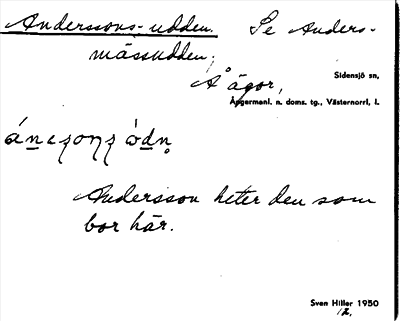 Anderssons-udden. Se Anders-
mässudden,
Å ägor,
Sidensjö sn,
Ångermanl. n. doms. tg., Västernorrl. l.
Andersson heter den som
bor här.
Sven Hiller 1950
12.